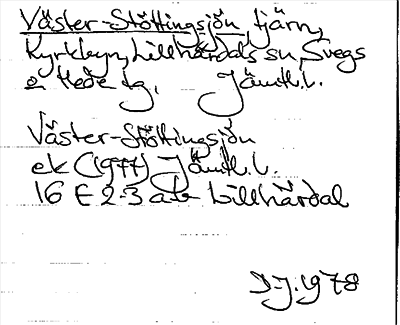 Väster-Stöttingsjön, tjärn,
Kyrkbyn, Lillhärdals sn, Svegs
o. Hede tg, Jämtl. l.
Väster-Stöttingsjön
ek (1977) Jämtl. l.
16 E 2-3 a-b Lillhärdal
D-J. 1978